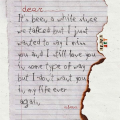 dear...
It's been a while since
we talked but I just
wanted to say I miss
you and I still love you
in some type of way
but I don't want you
in my life ever
again.